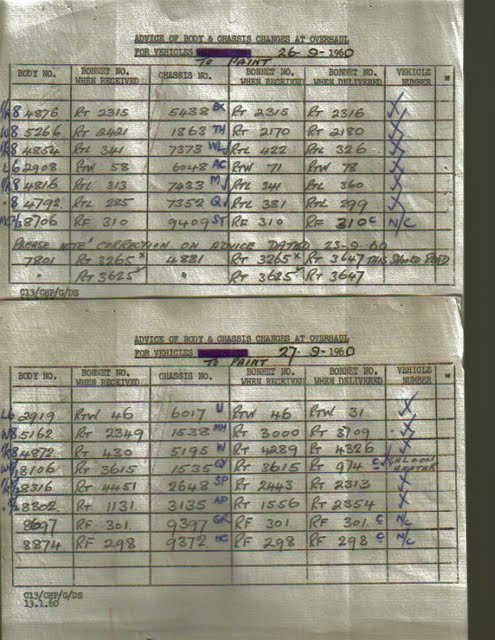 ADVICE OF BODY & CHASSIS CHANGES AT OVERHAUL
FOR VEHICLES 26-9-1960
TO PAINT
BODY NO. BONNET NO. WHEN RECEIVED CHASSIS NO. BONNET NO. WHEN RECEIVED BONNET NO. WHEN DELIVERED VEHICLE NUMBER *
8 4876 RT 2315 5438 BX RT 2315 RT 2316 X
W8 5266 RT 2421 1863 TH RT 2170 RT 2180 X
8 4854 RTL 341 7373 WL RTL 422 RTL 326 X
L6 2908 RTW 58 6048 AC RTW 71 RTW 78 X
8 4816 RTL 313 7433 M RTL 341 RTL 360 X
8 4792 RTL 285 7352 Q RTL 381 RTL 299 X
8706 RF 310 9409 ST RF 310 RF 310 C N/C
PLEASE NOTE CORRECTION ON ADVICE DATED 23-9-60
7801 RT 3265 x 4881 RT 3265 x RT 3647 THIS SHOULD READ
" RT 3625 " RT 3625 RT 3647
C13/CHP/G/DS
ADVICE OF BODY & CHASSIS CHANGES AT OVERHAUL
FOR VEHICLES 27-9-1960
TO PAINT
BODY NO. BONNET NO. WHEN RECEIVED CHASSIS NO. BONNET NO. WHEN RECEIVED BONNET NO. WHEN DELIVERED VEHICLE NUMBER *
L6 2919 RTW 46 6017 U RTW 46 RTW 31 X
W8 5162 RT 2349 1538 MH RT 3000 RT 3709 X
8 4872 RT 430 5195 W RT 4289 RT 4326 X
8106 RT 3615 1535 QY RT 3615 RT 974 C X SALOON HEATER
8316 RT 4451 2648 SP RT 2443 RT 2313 X
8302 RT 1131 3135 AP RT 1556 RT 2354 X
8697 RF 301 9397 GR RF 301 RF 301 C N/C
8874 RF 298 9372 MC RF 298 RF 298 C N/C
C13/CHP/G/DS
13.1.60